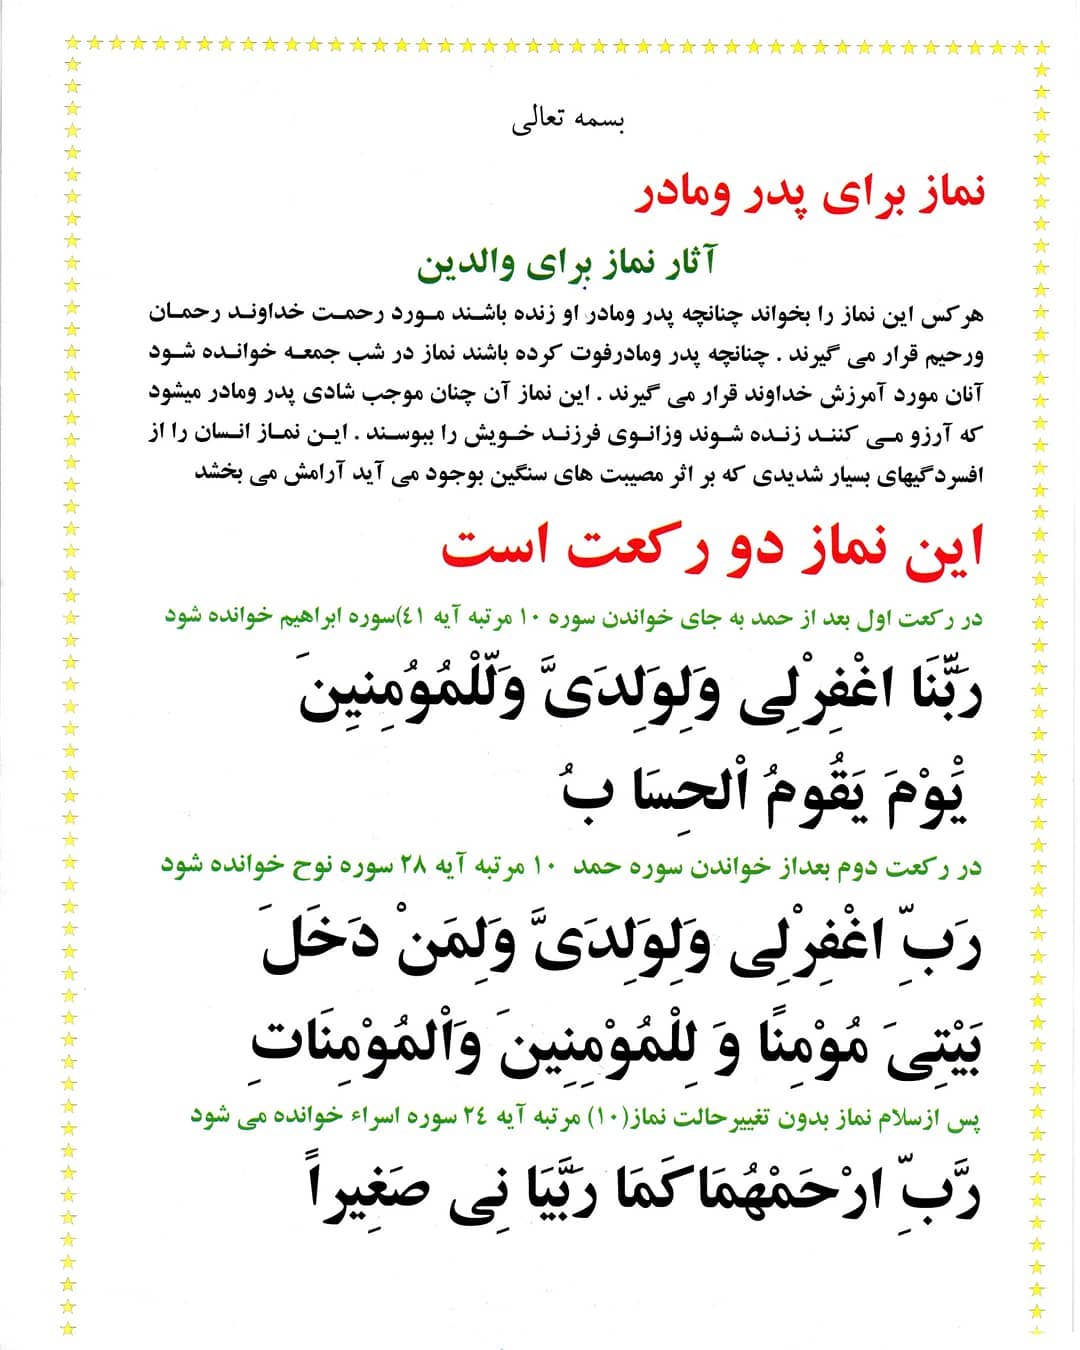 بسمه تعالی
نماز برای پدر ومادر
آثار نماز برای والدین
هرکس این نماز را بخواند چنانچه پدر ومادر او زنده باشند مورد رحمت خداوند رحمان
ورحیم قرار می گیرند . چنانچه پدر ومادرفوت کرده باشند نماز در شب جمعه خوانده شود
آنان مورد آمرزش خداوند قرار می گیرند . این نماز آن چنان موجب شادی پدر ومادر میشود
که آرزو می کنند زنده شوند وزانوی فرزند خویش را ببوسند . این نماز انسان را از
افسردگیهای بسیار شدیدی که بر اثر مصیبت های سنگین بوجود می آید آرامش می بخشد
این نماز دو رکعت است
در رکعت اول بعد از حمد به جای خواندن سوره ۱۰ مرتبه آیه ٤١)سوره ابراهیم خوانده شود
رَبَّنَا اغْفِرْلِی وَلِوَلِدَیَّ وَلّلْمُوُمِنِینَ
یَْوْمَ یَقُومُ اْلحِسَا بُ
در رکعت دوم بعداز خواندن سوره حمد ۱۰ مرتبه آیه ۲۸ سوره نوح خوانده شود
رَبِّ اغْفِرْلِی وَلِوَلِدَیَّ وَلِمَنْ دَخَلَ
بَیْتِیَ مُوْمِنًا وَ لِلْمُوْمِنِینَ وَاْلمُوْمِنَاتِ
پس ازسلام نماز بدون تغییرحالت نماز(۱۰) مرتبه آیه ۲٤ سوره اسراء خوانده می شود
رَّبِّ ارْحَمْهُمَا کَمَا رَبَّیَا نِی صَغِیراً